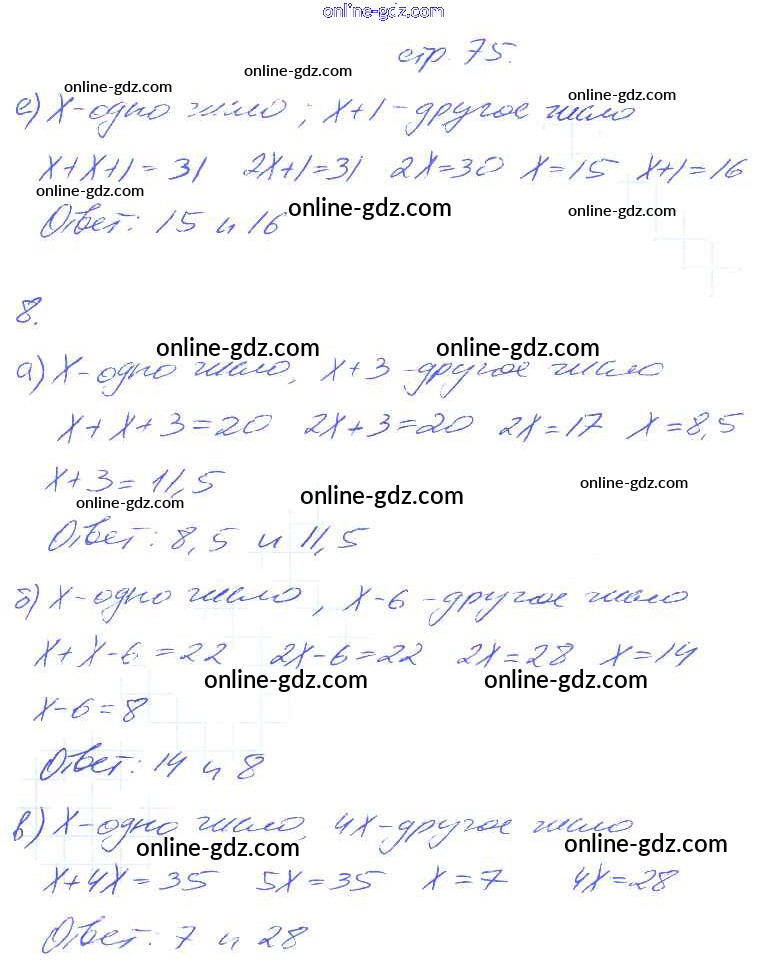 online-gdz.com
стр. 75.
online-gdz.com
online-gdz.com
online-gdz.com
е) x - одно число; x+1 - другое число
x+x+1=31 2x+1=31 2x=30 x=15 x+1=16
online-gdz.com
Ответ: 15 и 16
online-gdz.com
online-gdz.com
8.
online-gdz.com
online-gdz.com
а) x - одно число, x+3 - другое число
x+x+3=20 2x+3=20 2x=17 x=8,5
x+3=11,5
online-gdz.com
online-gdz.com
online-gdz.com
Ответ: 8,5 и 11,5
б) x - одно число, x-6 - другое число
x+x-6=22 2x-6=22 2x=28 x=14
online-gdz.com
online-gdz.com
x-6=8
Ответ: 14 и 8
в) x - одно число, 4x - другое число
online-gdz.com
online-gdz.com
x+4x=35 5x=35 x=7 4x=28
Ответ: 7 и 28